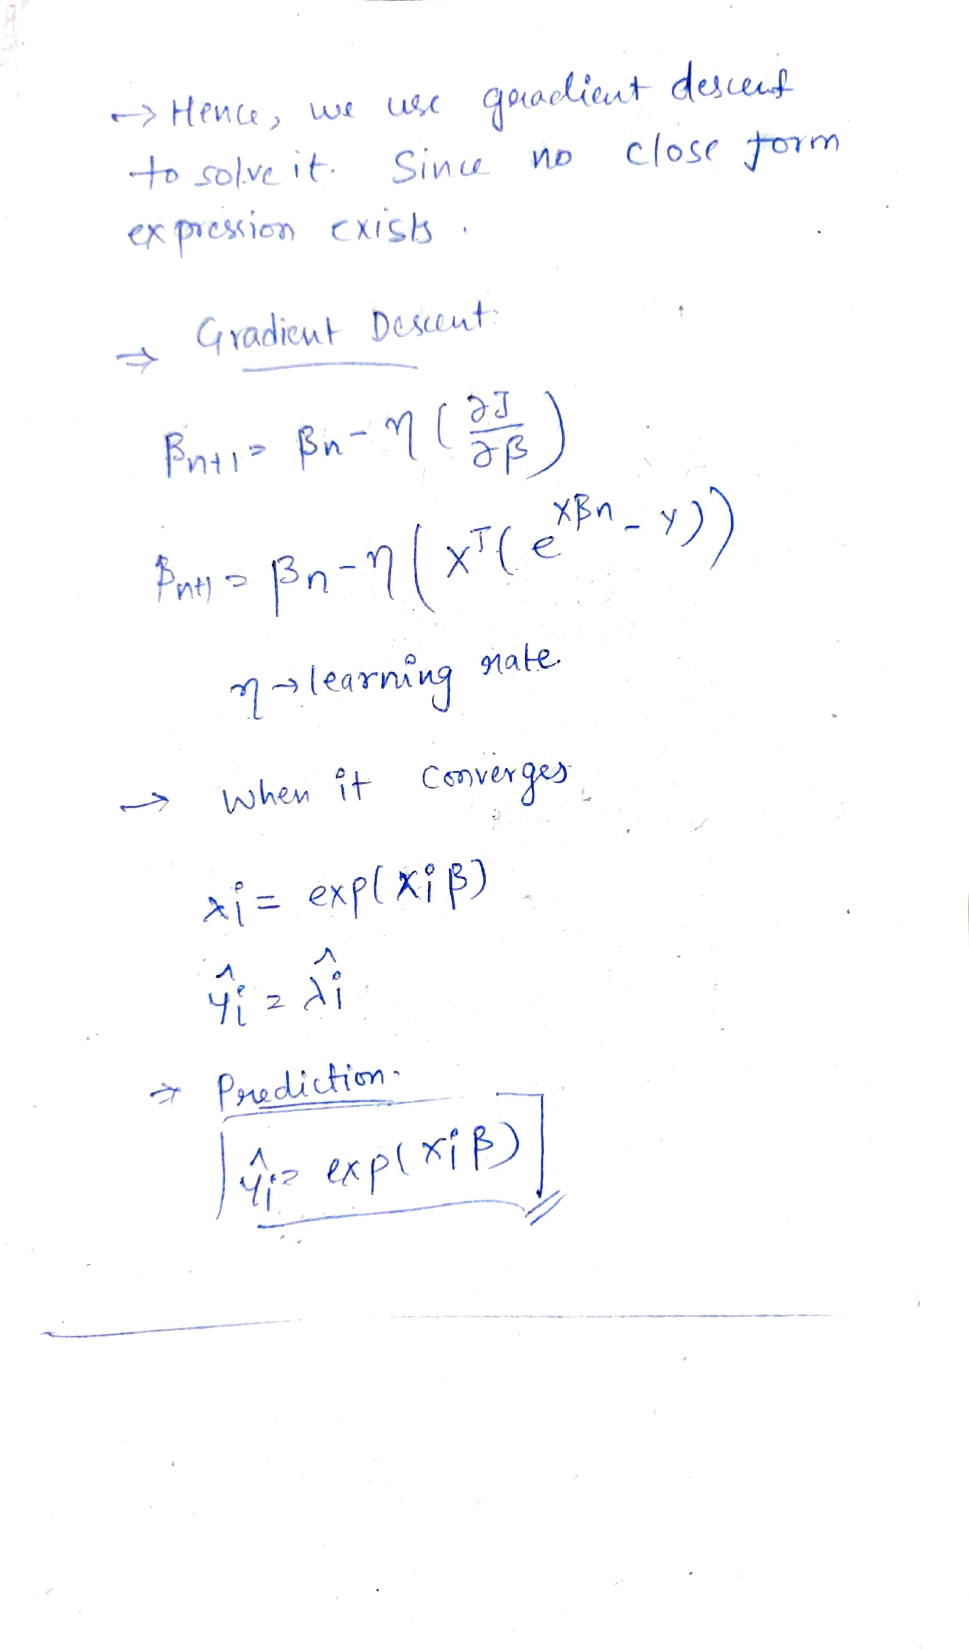 → Hence, we use gradient descent
to solve it. Since no close form
expression exists.
⇒ Gradient Descent:
βn+1 = βn - η (∂J/∂β)
βn+1 = βn - η (X^T(e^Xβn - y))
η → learning rate.
→ When it converges
λi = exp(xiβ)
ŷi = λ̂i
⇒ Prediction.
ŷi = exp(xiβ)